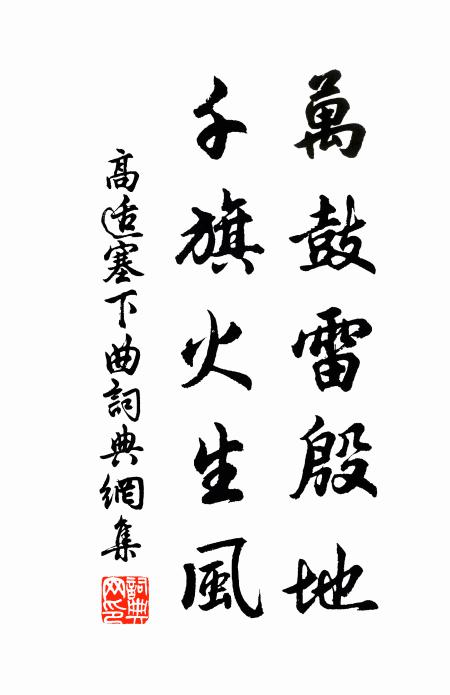 萬鼓雷殷地
千旗火生風
高適塞下曲詞典網集
詞典網印